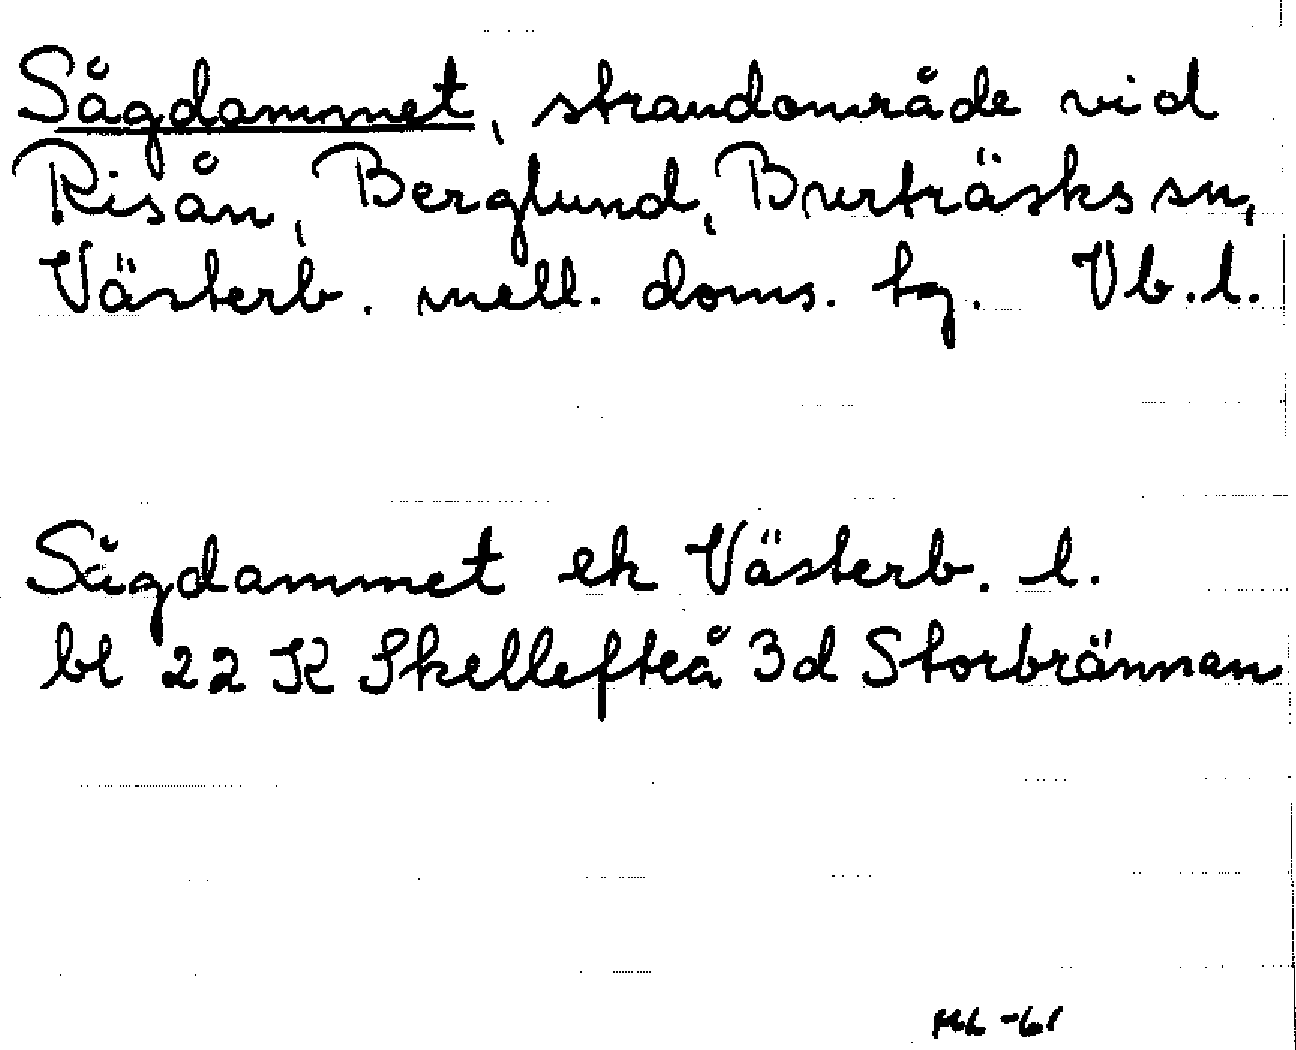 Sågdammet, strandområde vid
Risån, Berglund, Burträsks sn,
Västerb. mell. doms. tg. Vb.l.
Sågdammet ek Västerb. l.
bl 22 K Skellefteå 3d Storbrännan